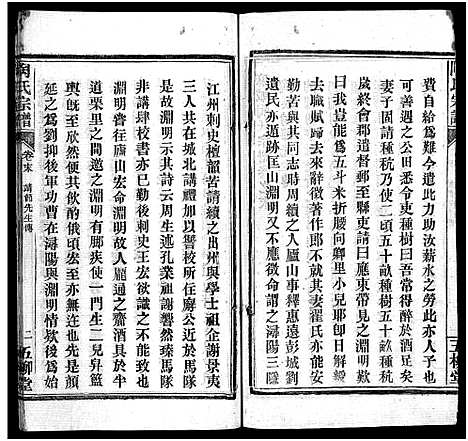 費自給爲難今遣此力助汝薪水之勞此亦人子也
可善遇之公田悉令吏種樹曰吾常得醉於酒足矣
妻子固請種秔乃使二頃五十畝種樹五十畝種秔
歲終會郡遣督郵至縣吏請曰應束帶見之淵明歎
曰我豈能爲五斗米折腰向鄉里小兒耶卽日解綬
去職賦歸去來辭徵著作郎不就其妻翟氏亦能安
勤苦與其同志時周續之入廬山事釋惠遠彭城劉
遺民亦遁跡匡山淵明又不應徵命謂之潯陽三隱
江州刺史檀韶苦請續之出州與學士祖企謝景夷
三人共在城北講禮加以讐校所住廨公近於馬隊
是故淵明示其詩云周生述孔業祖謝響然臻馬隊
非講肆校書亦已勤後刺史王宏欲識之不能致也
淵明嘗往廬山宏命淵明故人龐通之齎酒具於半
道栗里之間邀之淵明有脚疾使一門生二兒舁籃
輿旣至欣然便共飲酌俄頃宏至亦無迕也先是顏
延之爲劉抑後軍功曹在潯陽與淵明情欵後爲始
陶氏宗譜 卷末 靖節先生傳 二 五柳堂